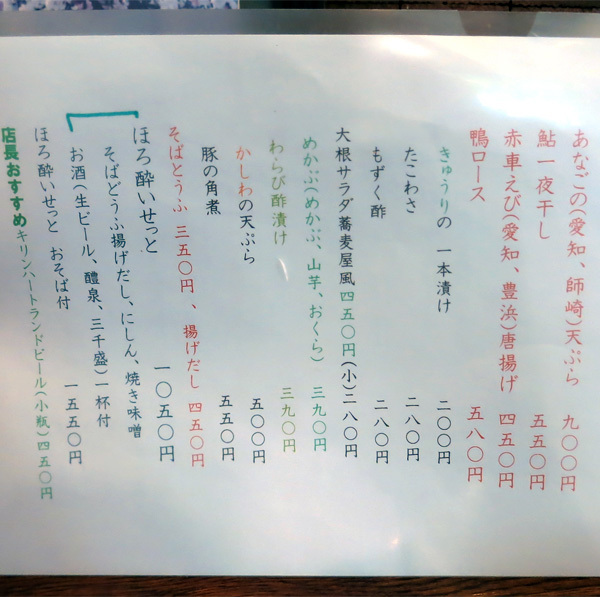 あなごの(愛知、師崎)天ぷら 九〇〇円
鮎一夜干し 五五〇円
赤車えび(愛知、豊浜)唐揚げ 四五〇円
鴨ロース 五八〇円
きゅうりの 一本漬け 二〇〇円
たこわさ 二八〇円
もずく酢 二八〇円
大根サラダ蕎麦屋風四五〇円(小)二八〇円
めかぶ(めかぶ、山芋、おくら) 三九〇円
わらび酢漬け 三九〇円
かしわの天ぷら 五〇〇円
豚の角煮 五五〇円
そばとうふ 三五〇円 、 揚げだし 四五〇円
ほろ酔いせっと 一〇五〇円
そばどうふ揚げだし、にしん、焼き味噌
お酒(生ビール、醴泉、三千盛)一杯付
ほろ酔いせっと おそば付 一五五〇円
店長おすすめ キリンハートランドビール(小瓶)四五〇円